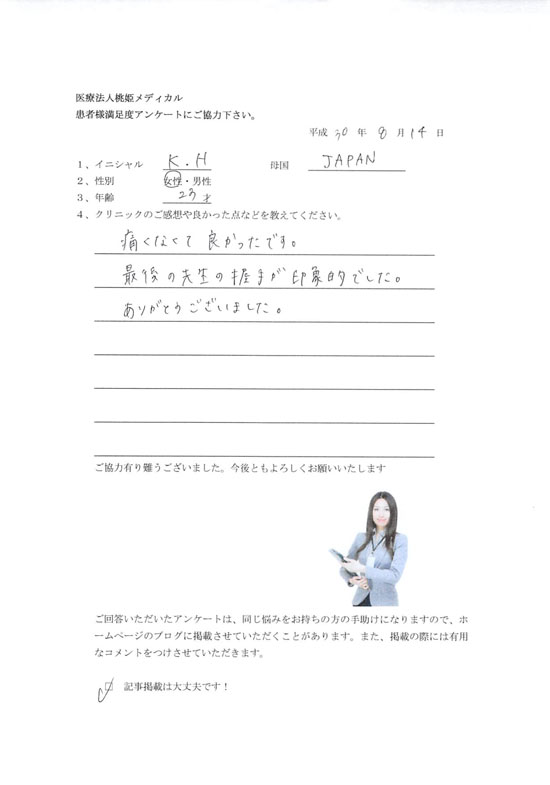 医療法人桃姫メディカル
患者様満足度アンケートにご協力下さい。
平成 30 年 8 月 14 日
1、イニシャル K.H 母国 JAPAN
2、性別 女性・男性
3、年齢 23才
4、クリニックのご感想や良かった点などを教えてください。
痛くなくて 良かったです。
最後の先生の握手が印象的でした。
ありがとうございました。
ご協力有り難うございました。今後ともよろしくお願いいたします
ご回答いただいたアンケートは、同じ悩みをお持ちの方の手助けになりますので、ホ
ームページのブログに掲載させていただくことがあります。また、掲載の際には有用
なコメントをつけさせていただきます。
□ 記事掲載は大丈夫です！